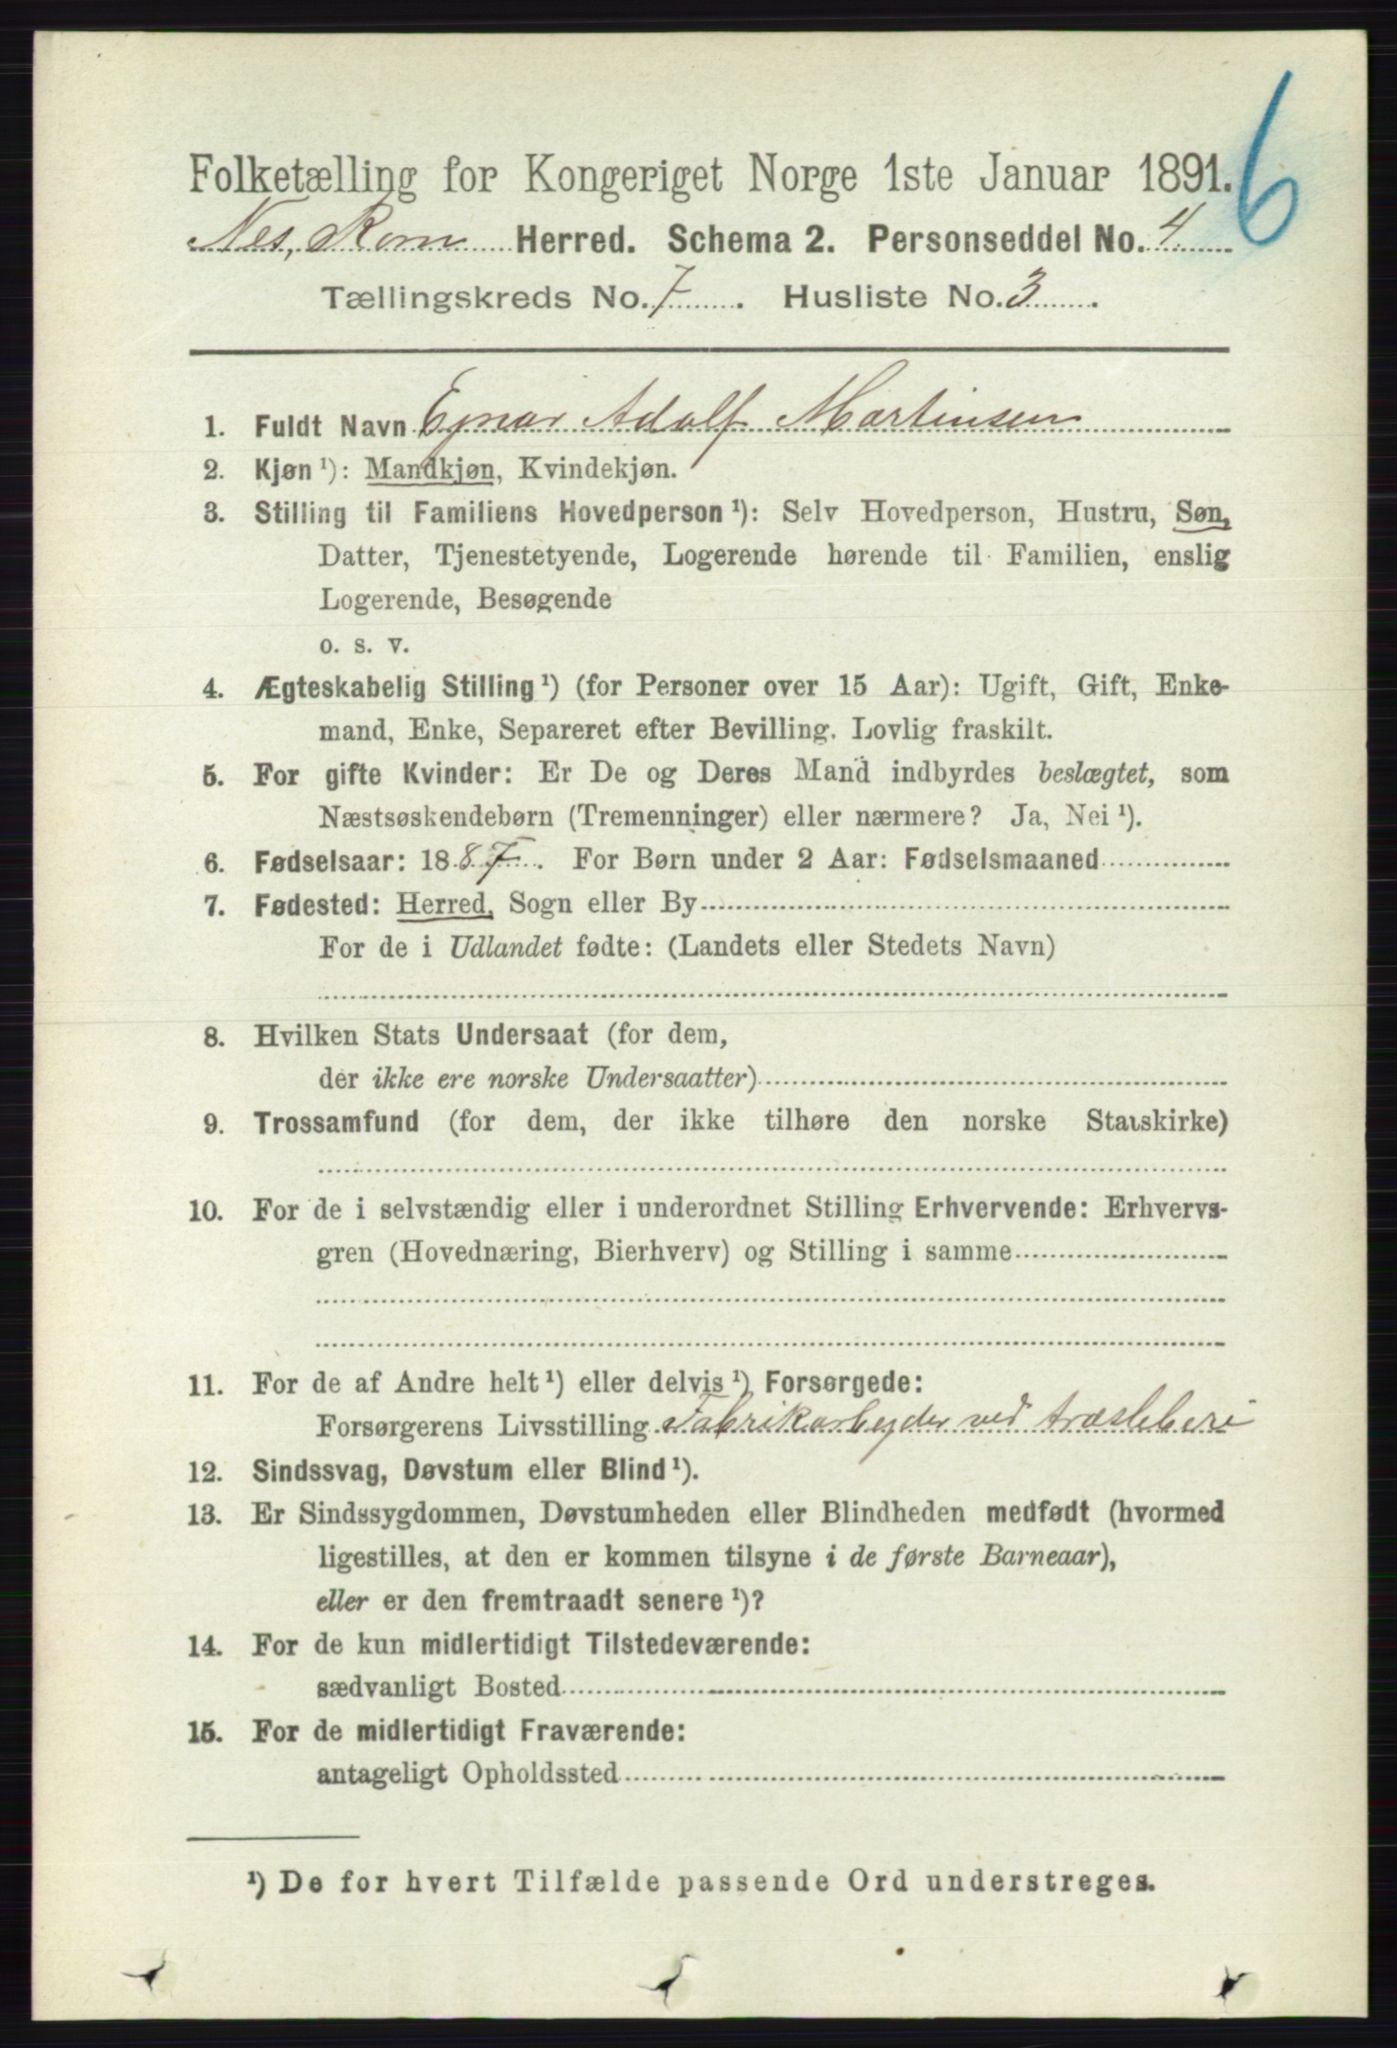 6
Folketælling for Kongeriget Norge 1ste Januar 1891.
Nes, Rom Herred. Schema 2. Personseddel No. 4
Tællingskreds No. 7. Husliste No. 3.
1. Fuldt Navn Ejnar Adolf Martinsen
2. Kjøn ¹): Mandkjøn, Kvindekjøn.
3. Stilling til Familiens Hovedperson ¹): Selv Hovedperson, Hustru, Søn,
Datter, Tjenestetyende, Logerende hørende til Familien, enslig
Logerende, Besøgende
o. s. v.
4. Ægteskabelig Stilling ¹) (for Personer over 15 Aar): Ugift, Gift, Enke-
mand, Enke, Separeret efter Bevilling. Lovlig fraskilt.
5. For gifte Kvinder: Er De og Deres Mand indbyrdes beslægtet, som
Næstsøskendebørn (Tremenninger) eller nærmere? Ja, Nei ¹).
6. Fødselsaar: 1887. For Børn under 2 Aar: Fødselsmaaned
7. Fødested: Herred, Sogn eller By
For de i Udlandet fødte: (Landets eller Stedets Navn)
8. Hvilken Stats Undersaat (for dem,
der ikke ere norske Undersaatter)
9. Trossamfund (for dem, der ikke tilhøre den norske Statskirke)
10. For de i selvstændig eller i underordnet Stilling Erhvervende: Erhvervs-
gren (Hovednæring, Bierhverv) og Stilling i samme
11. For de af Andre helt ¹) eller delvis ¹) Forsørgede:
Forsørgerens Livsstilling Fabrikarbejder ved træsleberi
12. Sindssvag, Døvstum eller Blind ¹).
13. Er Sindssygdommen, Døvstumheden eller Blindheden medfødt (hvormed
ligestilles, at den er kommen tilsyne i de første Barneaar),
eller er den fremtraadt senere ¹)?
14. For de kun midlertidigt Tilstedeværende:
sædvanligt Bosted
15. For de midlertidigt Fraværende:
antageligt Opholdssted
¹) De for hvert Tilfælde passende Ord understreges.